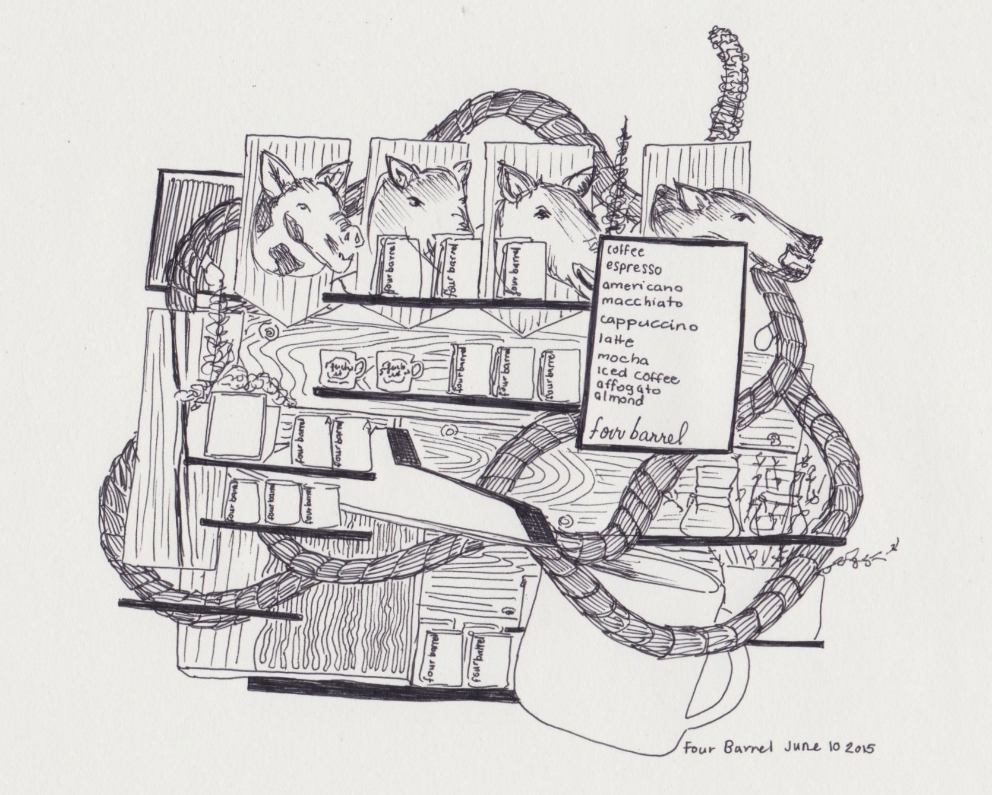 four barrel
four barrel
four barrel
coffee
espresso
americano
macchiato
cappuccino
latte
mocha
Iced coffee
affogato
almond
four barrel
four barrel
four barrel
four barrel
four barrel
four barrel
four barrel
four barrel
four barrel
four barrel
four barrel
Four Barrel June 10 2015